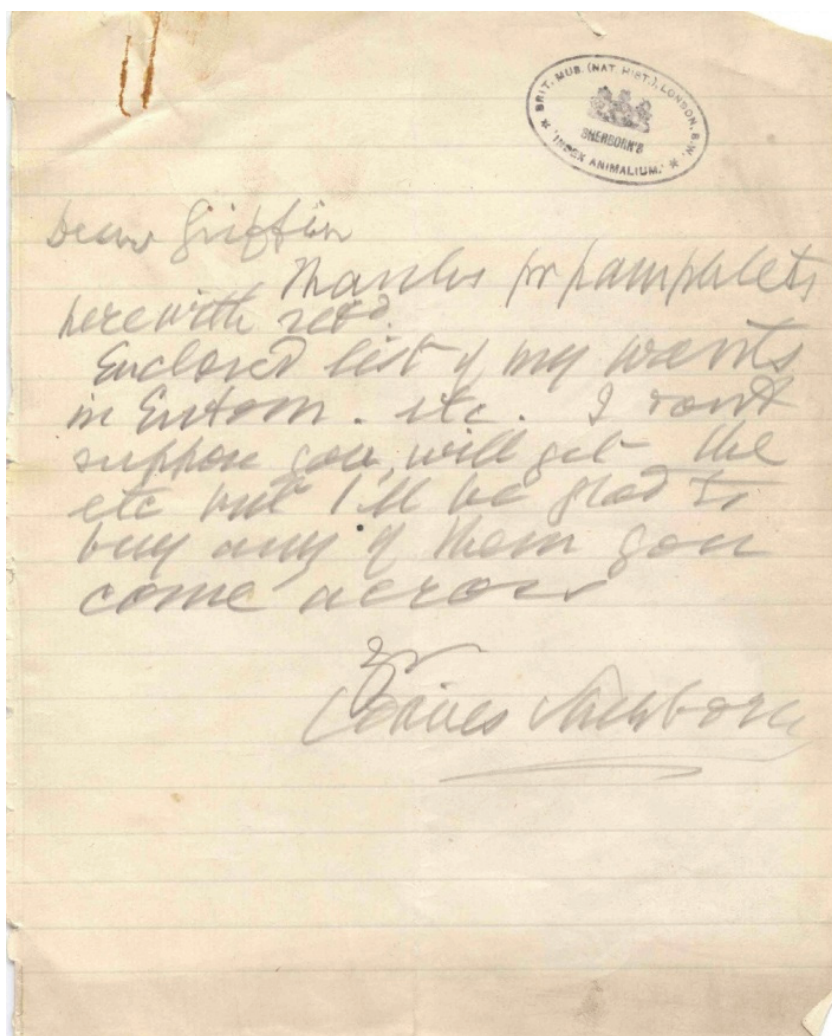 BRIT. MUS. (NAT. HIST.), LONDON, S.W.
SHERBORN'S
'INDEX ANIMALIUM.'
Dear Griffin
Thanks for pamphlets
herewith retd.
Enclosed list of my wants
in Entom. etc. I dont
suppose you will get the
etc but I'll be glad to
buy any of them you
come across
Yr
C Davies Sherborn